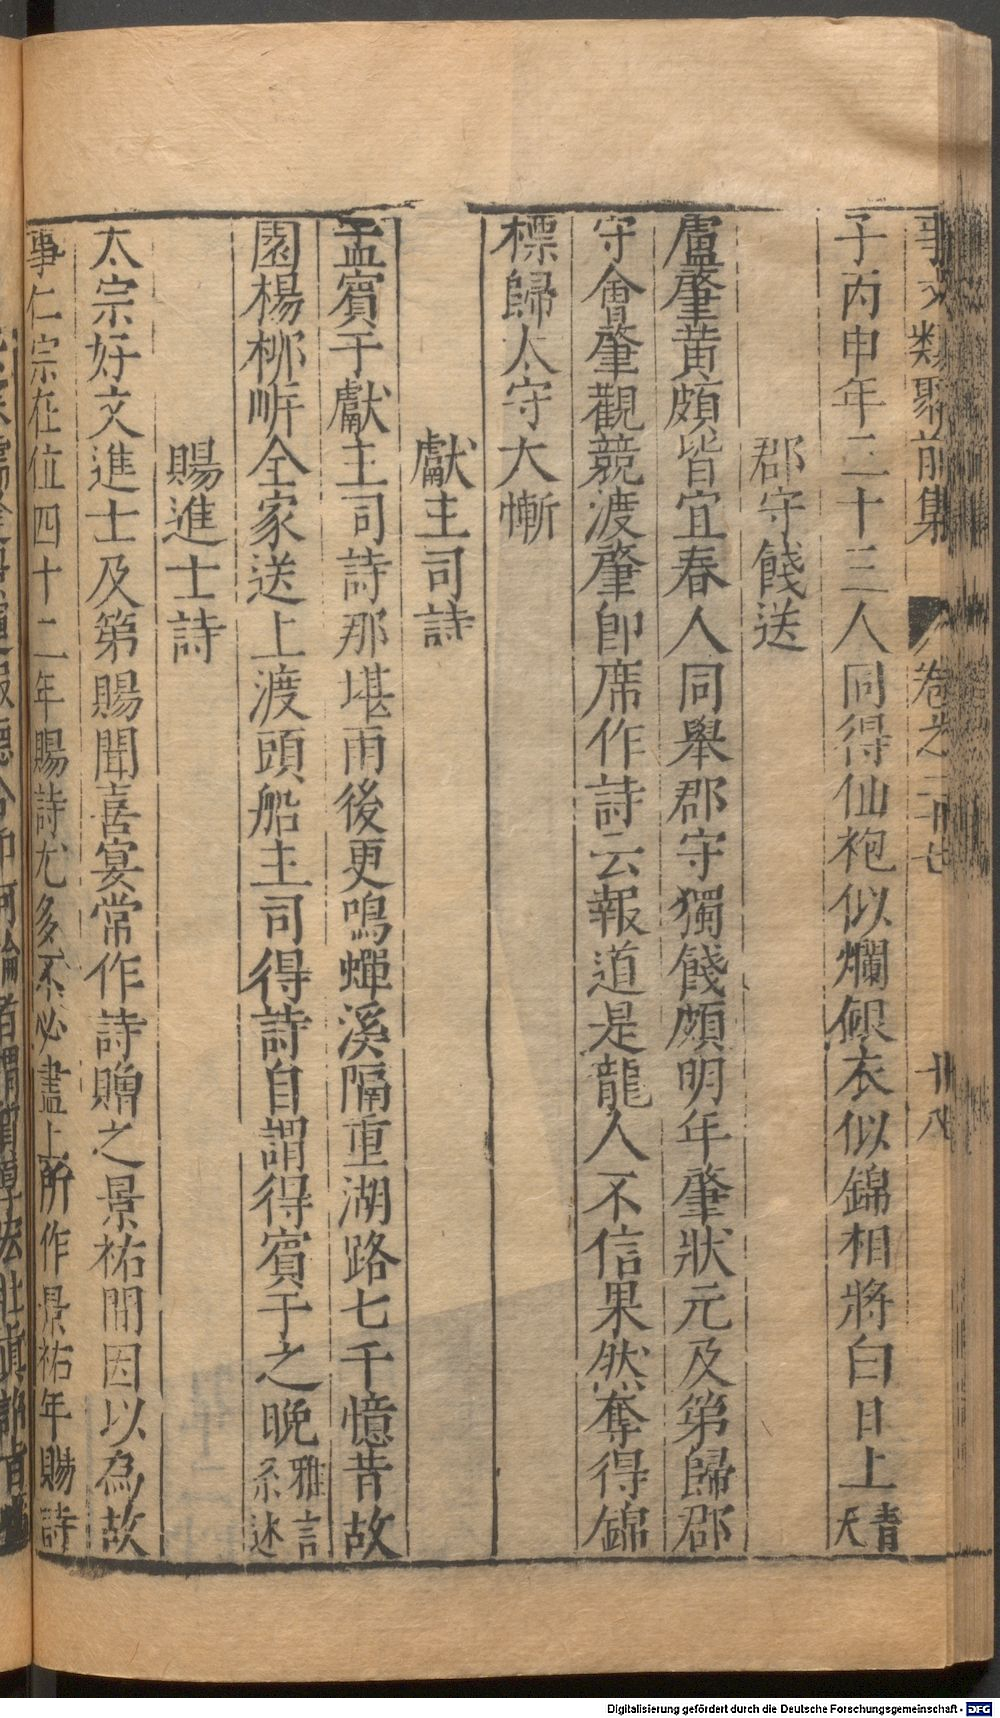 事文類聚前集 卷之二十七 廿八
子丙申年二十三人同得仙袍似爛銀衣似錦相將白日上青天
郡守餞送
盧肇黃頗皆宜春人同舉郡守獨餞頗明年肇狀元及第歸郡
守會肇觀競渡肇即席作詩云報道是龍人不信果然奪得錦
標歸太守大慚
獻主司詩
孟賓于獻主司詩那堪雨後更鳴蟬溪隔重湖路七千憶昔故
園楊柳岍全家送上渡頭船主司得詩自謂得賓于之晚雅言系述
賜進士詩
太宗好文進士及第賜聞喜宴常作詩贈之景祐間因以為故
事仁宗在位四十二年賜詩尤多不必盡上所作景祐年賜詩
Digitalisierung gefördert durch die Deutsche Forschungsgemeinschaft - DFG